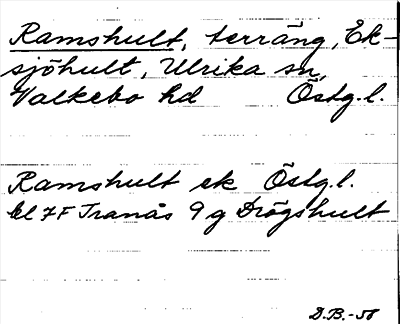 Ramshult, terräng, Ek-
sjöhult, Ulrika sn,
Valkebo hd Östg.l.
Ramshult ek Östg.l.
bl 7F Tranås 9 g Drögshult
D.B.-58